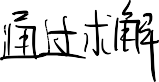 通过求解